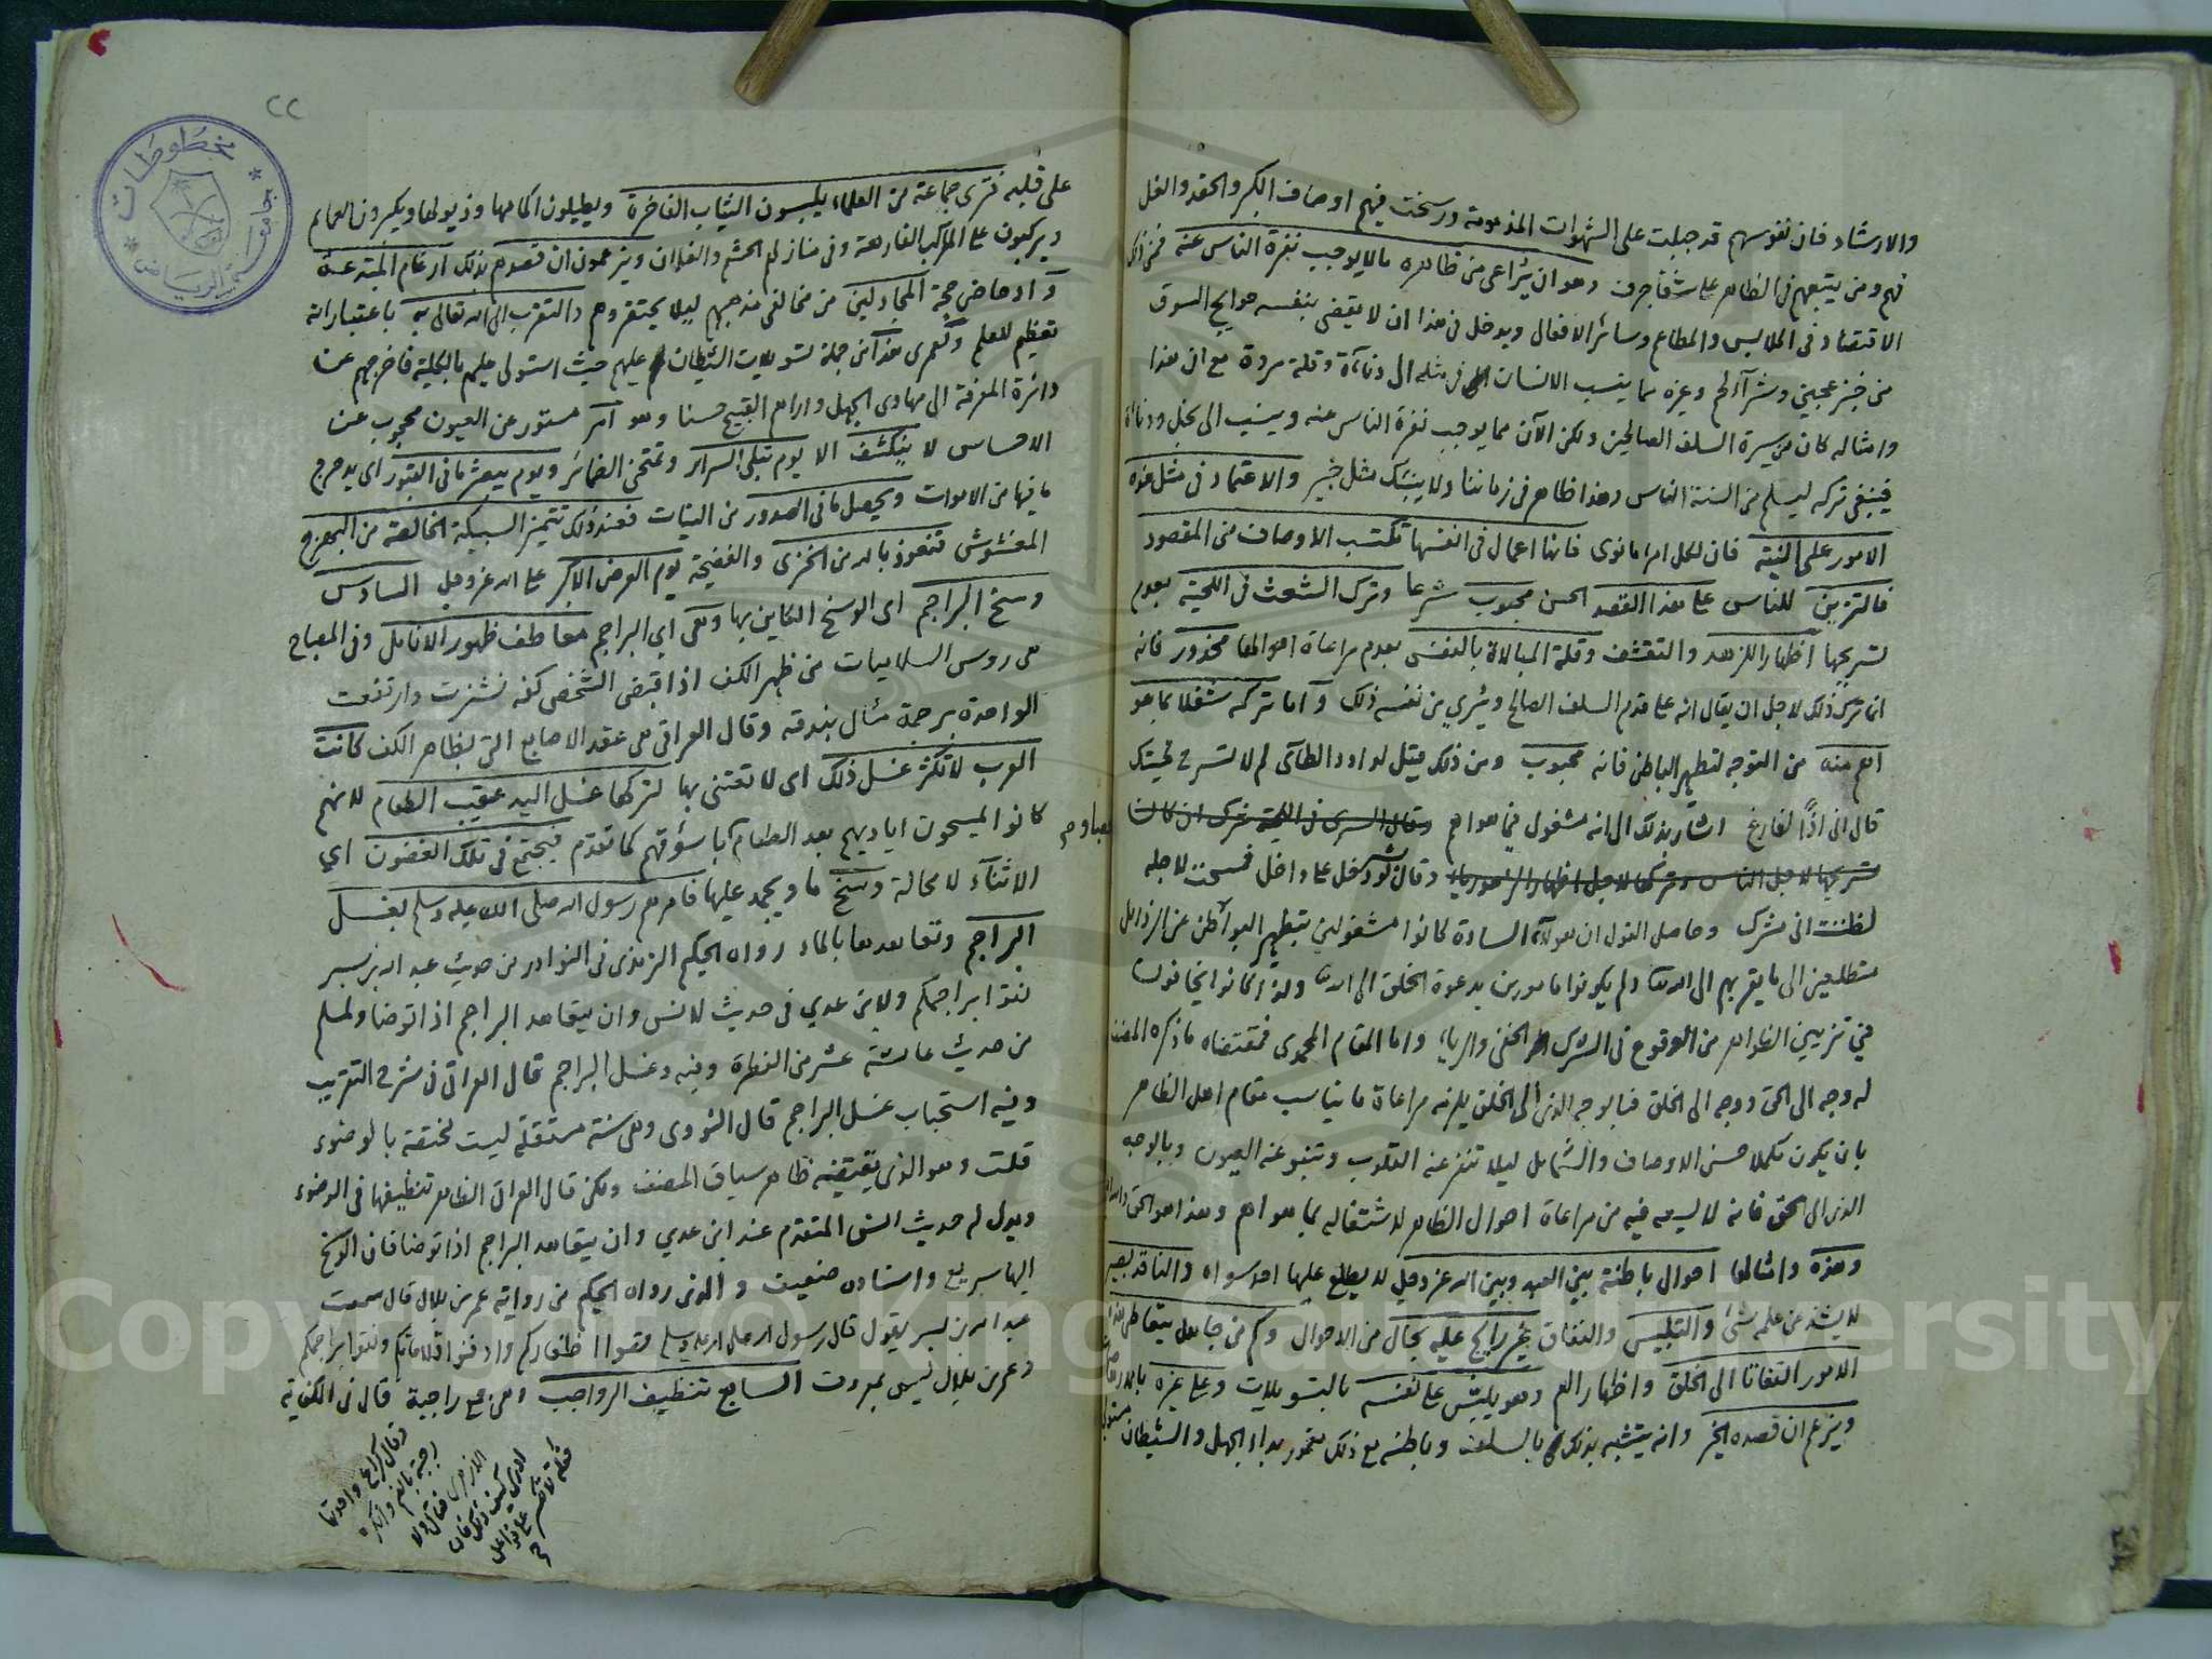 والارشاد فان نفوسهم قد جبلت على الشهوات المذمومة ورسخت فيهم اوصاف الكبر والحقد والغل
فهم ومن يتبعهم في الظاهر على شفا جرف وهو ان يراعى من ظاهره ما لا يوجب نفرة الناس عنه فمن ذلك
الاقتصاد في الملابس والمطاعم وسائر الافعال ويدخل في هذا ان لا يقضى بنفسه حوايج السوق
من خبز عجين وشرآ لحم وغيره مما ينسب الانسان في مثله الى دناءة وقلة مروة مع ان هذا
وامثاله كان من سيرة السلف الصالحين ولكن الآن مما يوجب نفرة الناس عنه وينسب الى بخل ودناءة
فينبغى تركه ليسلم من السنة الناس وهذا ظاهر في زماننا ولا ينبئك مثل خبير والاعتماد في مثل هذه
الامور على النية فان لكل امرء ما نوى فانها اعمال في انفسها تكتسب الاوصاف من المقصود
فالتزين للناس على هذا القصد الحسن محبوب شرعا وترك الشعث في اللحية بعدم
تسريحها اظهارا للزهد والتقشف وقلة المبالاة بالنفس بعدم مراعاة احوالها محذور فانه
انما ترك ذلك لاجل ان يقال انه على قدم السلف الصالح ويرى من نفسه ذلك وآما تركه شغلا بما هو
اهم منه من التوجه لتطهير الباطن فانه محبوب ومن ذلك قيل لداود الطآئى لم لا تسرح لحيتك
قال انى اذًا لفارغ اشار بذلك الى انه مشغول فيما هو اهم وقال السرى في اللحية شرك ان كان
تسريحها لاجل الناس وتركها لاجل اظهار الزهد رياء وقال لو دخل على داخل فمسحت لاجله
لظننت انى مشرك وحاصل القول ان هولآء السادة كانوا مشغولين بتطهير البواطن عن الرذائل
متطلعين الى ما يقربهم الى الله تعالى ولم يكونوا مامورين بدعوة الخلق الى الله ولذا كانوا يخافون
في تزيين الظواهر من الوقوع في الشرك الخفى والرياء واما المقام المحمدى فمقتضاه ما ذكره المصنف
له وجه الى الحق ووجه الى الخلق فبالوجه الذى الى الخلق يلزمه مراعاة ما يناسب مقام اهل الظاهر
بان يكون مكملا حسن الاوصاف والشمايل ليلا تنفر عنه القلوب وتنبو عنه العيون وبالوجه
الذى الى الحق فانه لا يسعه فيه من مراعاة احوال الظاهر لاشتغاله بما هو اهم وهذا هو الحق
وهذه وامثالها احوال باطنة بين العبد وبين الله عز وجل لا يطلع عليها احد سواه والناقد بصير
لا يشذ عن علمه شئ والتلبيس والنفاق غير رايج عليه بحال من الاحوال وكم من جاهل يتعاطى هذا
الامور التفاتا الى الخلق واظهارا لهم وهو يلبّس على نفسه بالتسويلات وعلى غيره
ويزعم ان قصده الخير وانه يتشبه بذلك بالسلف وباطنه مع ذلك مغمور بداء الجهل والشيطان
على قلبه فترى جماعة من العلماء يلبسون الثياب الفاخرة ويطيلون اكمامها وذيولها ويكبرون العمايم
ويركبون على المراكب الفارهة وفي منازلهم الحشم والغلمان ويزعمون ان قصدهم بذلك ارغام المبتدعة
وآدحاض حجة المجادلين من مخالفى مذهبهم ليلا يحتقروهم والتقرب الى الله تعالى به باعتبار انه
تعظيم للعلم ولعمرى هذا من جملة تسويلات الشيطان عليهم حيث استولى عليهم بالكلية فاخرجهم عن
دائرة المعرفة الى مهاوى الجهل واراهم القبيح حسنا وهو امر مستور عن العيون محجوب عن
الاحساس لا ينكشف الا يوم تبلى السرائر وتمتحن الضمائر ويوم يبعثر ما في القبور اى يدحرج
ما فيها من الاموات ويحصل ما في الصدور من النيات فعند ذلك تتميز السبيكة الخالصة من البهرج
المغشوش فنعوذ بالله من الخزى والفضيحة يوم العرض الاكبر على الله عز وجل السادس
وسخ البراجم اى الوسخ الكاين بها وهى اي البراجم معاطف ظهور الانامل وفي المصباح
هى روس السلاميات من ظهر الكف اذا قبض الشخص كفه نشزت وارتفعت
الواحدة برجمة مثال بندقة وقال العراقى هى عقد الاصابع التى بظاهر الكف كانت
العرب لا تكثر غسل ذلك اى لا تعتنى بها لتركها غسل اليد عقيب الطعام لانهم
كانوا يمسحون اياديهم بعد الطعام باسؤقهم كما تقدم فيجتمع في تلك الغضون اي
الاثنآء لا محالة وسخ ما ويجمد عليها فامرهم رسول الله صلى الله عليه وسلم بغسل
البراجم وتعاهدها بالماء رواه الحكيم الترمذى في النوادر من حديث عبد الله بن بسر
نقوا براجمكم ولابن عدي في حديث لانس وان يتعاهد البراجم اذا توضا ولمسلم
من حديث عائشة عشر من الفطرة وفيه وغسل البراجم قال العراقى في شرح التقريب
وفيه استحباب غسل البراجم قال النووى وهى سنة مستقلة ليست مختصة بالوضوء
قلت وهو الذى يقتضيه ظاهر سياق المصنف ولكن قال العراقى الظاهر تنظيفها في الوضوء
ويدل له حديث انس المتقدم عند ابن عدي وان يتعاهد البراجم اذا توضا فان الوسخ
اليها سريع واسناده ضعيف والذى رواه الحكيم من رواية عمر بن بلال قال سمعت
عبد الله بن بسر يقول قال رسول الله صلى الله عليه وسلم قصوا اظفاركم وادفنوا قلاماتكم ونقوا براجمكم
وعمر بن بلال ليس بمعروف السابع تنظيف الرواجب وهى جمع راجبة قال في الكفاية
وقال كراع واحدتها
رجبة بالضم